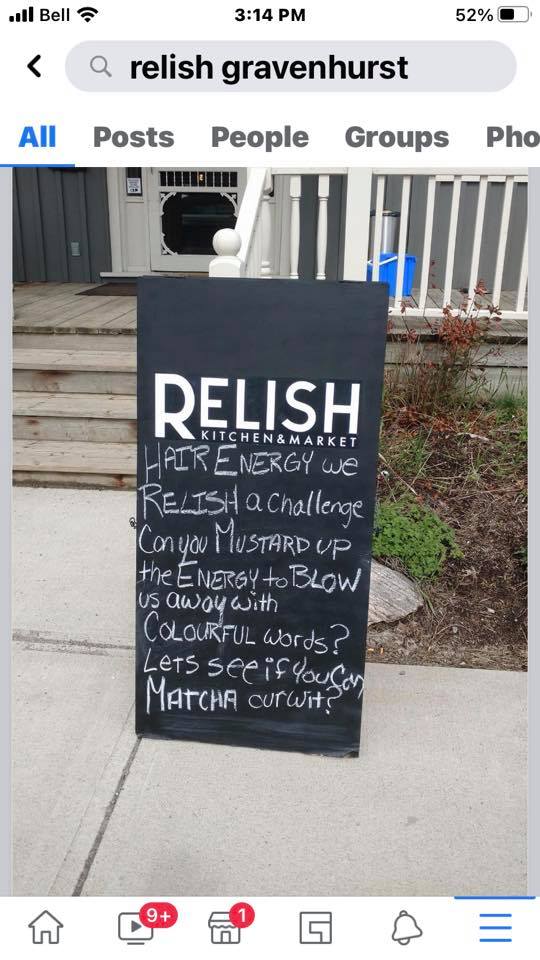 Bell 3:14 PM 52%
relish gravenhurst
All Posts People Groups Pho
RELISH
KITCHEN&MARKET
HAIR ENERGY we
RELISH a challenge
Can you MUSTARD UP
the ENERGY to BLOW
us away with
COLOURFUL words?
Lets see if you Can
MATCHA our wit?
9+ 1